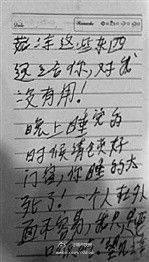 这些东西
还给你，对我
没有用！
晚上睡觉的
时候请关好
门窗，你睡的太
死了！一个人在外
面不容易，我只是
口 望见谅